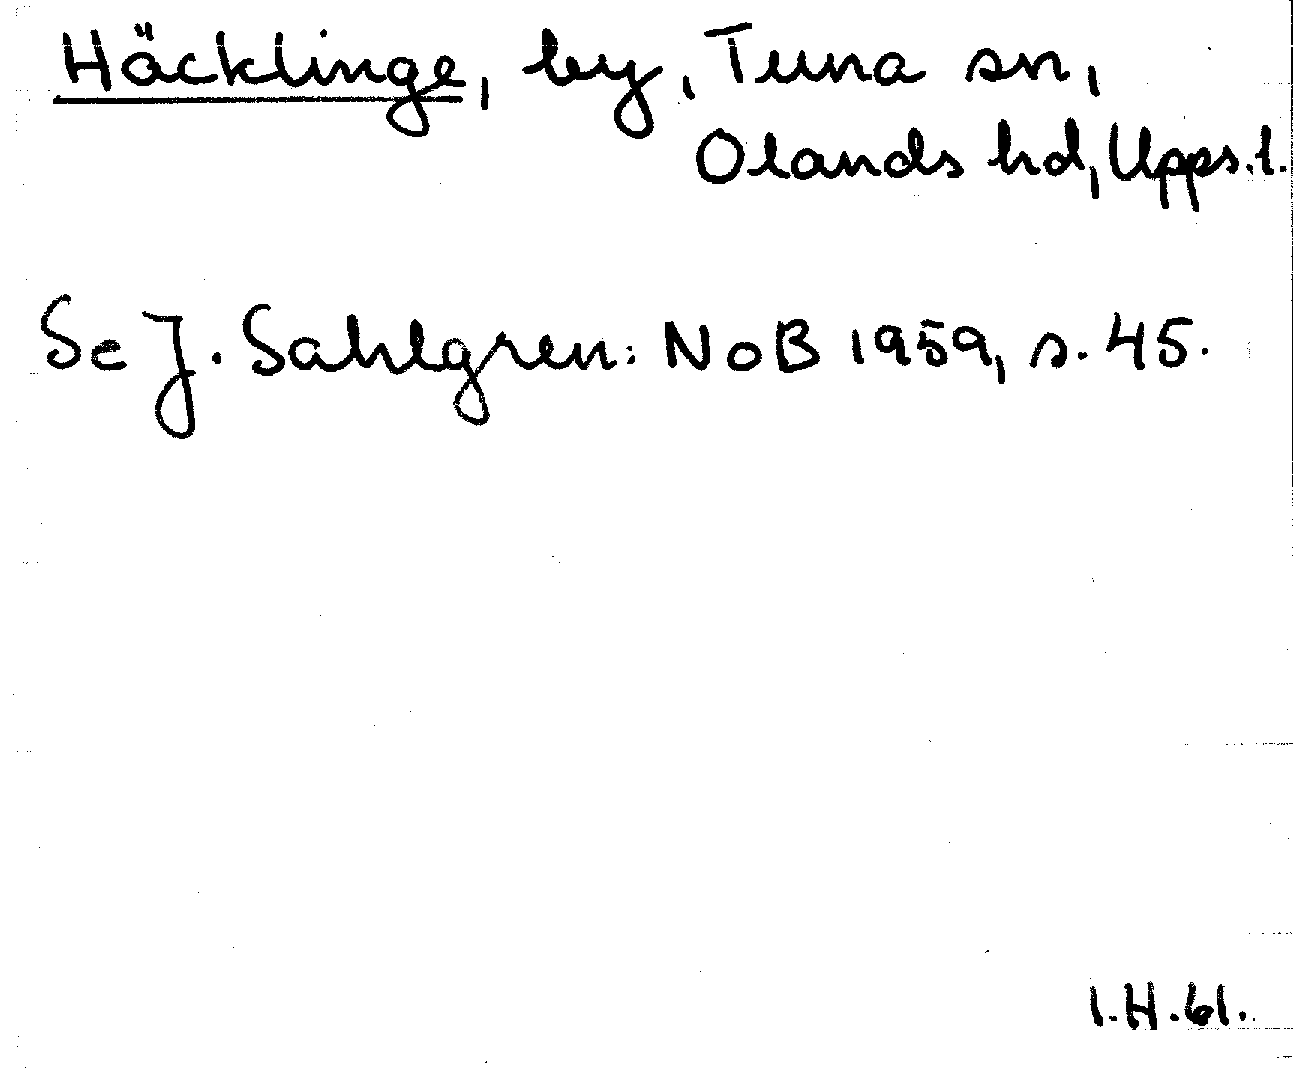 Häcklinge, by, Tuna sn,
Olands hd, Upps. l.
Se J. Sahlgren: NoB 1959, s. 45.
I.H.61.